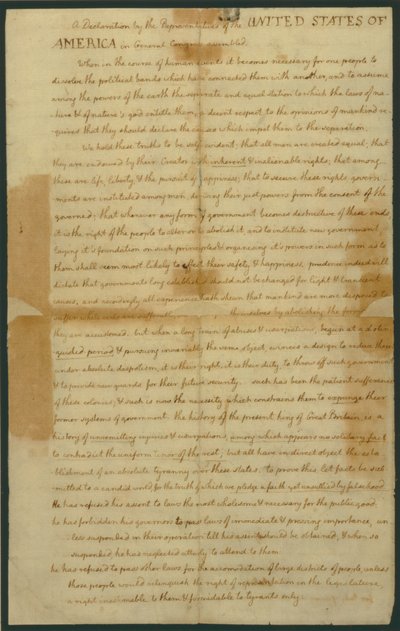 A Declaration by the Representatives of the UNITED STATES OF
AMERICA in General Congress assembled.
When in the course of human events it becomes necessary for one people to
dissolve the political bands which have connected them with another, and to assume
among the powers of the earth the separate and equal station to which the laws of na-
ture & of nature's god entitle them, a decent respect to the opinions of mankind re-
quires that they should declare the causes which impel them to the separation.
We hold these truths to be self evident: that all men are created equal; that
they are endowed by their Creator with inherent & inalienable rights; that among
these are life, liberty, & the pursuit of happiness; that to secure these rights, govern-
ments are instituted among men, deriving their just powers from the consent of the
governed; that whenever any form of government becomes destructive of these ends,
it is the right of the people to alter or to abolish it, and to institute new government,
laying it's foundation on such principles, & organising it's powers in such form, as to
them shall seem most likely to effect their safety & happiness. prudence indeed will
dictate that governments long established should not be changed for light & transient
causes; and accordingly all experience hath shewn that mankind are more disposed to
suffer while evils are sufferable, themselves by abolishing the forms
they are accustomed. but when a long train of abuses & usurpations, begun at a distin-
guished period & pursuing invariably the same object, evinces a design to reduce them
under absolute despotism, it is their right, it is their duty, to throw off such government
& to provide new guards for their future security. such has been the patient sufferance
of these colonies, & such is now the necessity which constrains them to expunge their
former systems of government. the history of the present king of Great Britain, is a
history of unremitting injuries & usurpations, among which appears no solitary fact
to contradict the uniform tenor of the rest; but all have in direct object the esta-
blishment of an absolute tyranny over these states. to prove this, let facts be sub-
mitted to a candid world, for the truth of which we pledge a faith yet unsullied by falsehood.
He has refused his assent to laws the most wholesome & necessary for the public good.
he has forbidden his governors to pass laws of immediate & pressing importance, un-
less suspended in their operation till his assent should be obtained; & when so
suspended, he has neglected utterly to attend to them.
he has refused to pass other laws for the accomodation of large districts of people, unless
those people would relinquish the right of representation in the legislature,
a right inestimable to them & formidable to tyrants only.